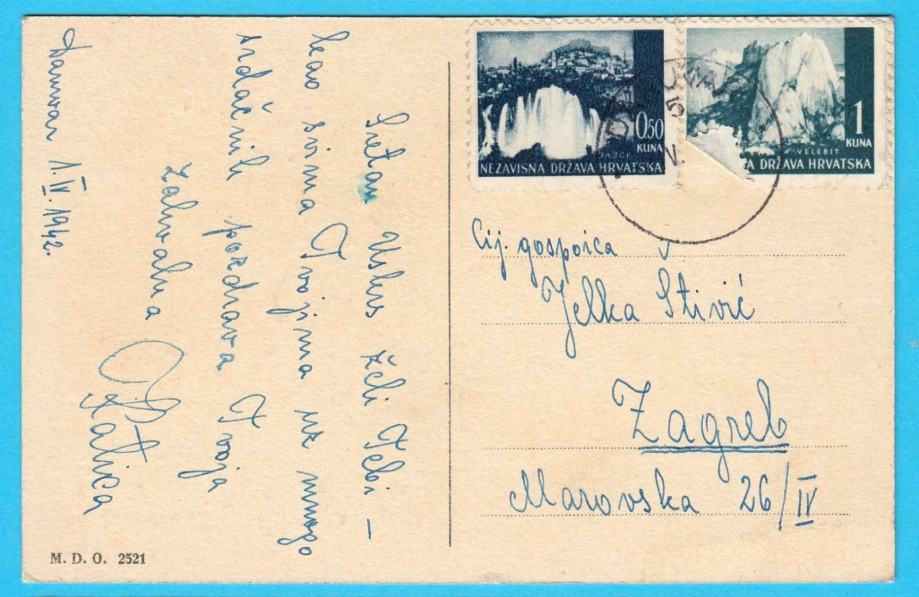 Daruvar 1.IV.1942.
Sretan Uskrs želi Tebi –
kao svima Tvojima uz mnogo
srdačnih pozdrava Tvoja
zahvalna
Zlatica
M. D. O. 2521
0.50
KUNA
JAJCE
NEZAVISNA DRŽAVA HRVATSKA
1
KUNA
VELEBIT
A DRŽAVA HRVATSKA
Cij. gospoica
Jelka Stivić
Zagreb
Marovska 26/IV